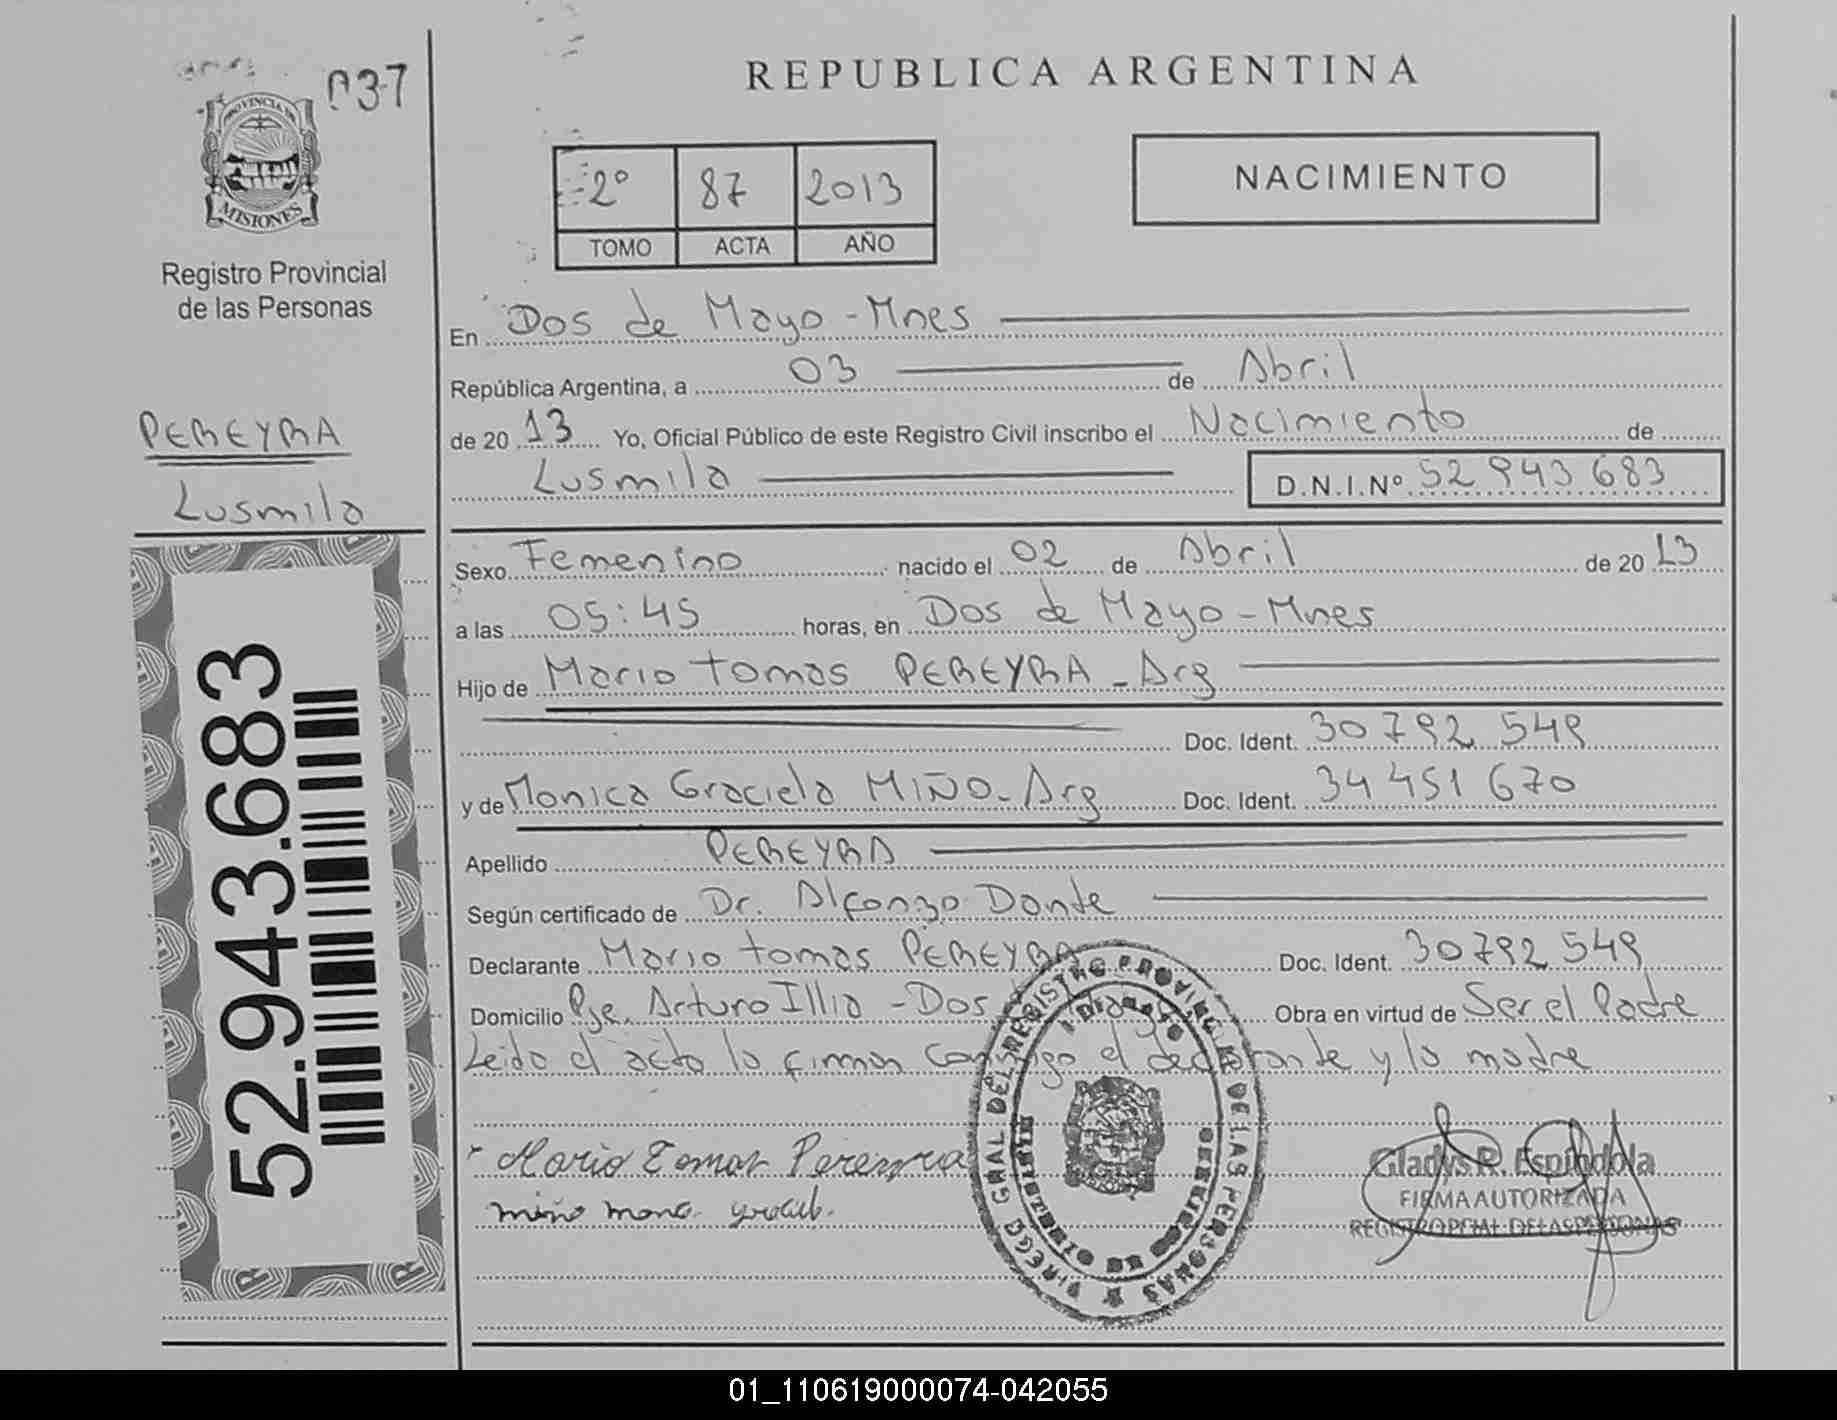 037
PROVINCIA DE
MISIONES
Registro Provincial
de las Personas
PEREYRA
Lusmila
52.943.683
REPUBLICA ARGENTINA
2º 87 2013
TOMO ACTA AÑO
NACIMIENTO
En Dos de Mayo - Mnes
República Argentina, a 03 de Abril
de 20 13 Yo, Oficial Público de este Registro Civil inscribo el Nacimiento de
Lusmila D.N.I.Nº 52 943 683
Sexo Femenino nacido el 02 de Abril de 20 13
a las 05:45 horas, en Dos de Mayo - Mnes
Hijo de Mario Tomas PEREYRA - Arg
Doc. Ident. 30 792 549
y de Monica Graciela MIÑO - Arg Doc. Ident. 34 451 670
Apellido PEREYRA
Según certificado de Dr. Alfonzo Dante
Declarante Mario Tomas PEREYRA Doc. Ident. 30 792 549
Domicilio Pje. Arturo Illia - Dos de Mayo Obra en virtud de Ser el Padre
Leido el acta la firman conmigo el declarante y la madre
Mario Tomas Pereyra
miño
Gladys R. Espindola
FIRMA AUTORIZADA
REGISTRO PCIAL DE LAS PERSONAS
DIRECC GRAL DEL REGISTRO PROVINCIAL DE LAS PERSONAS
01_110619000074-042055